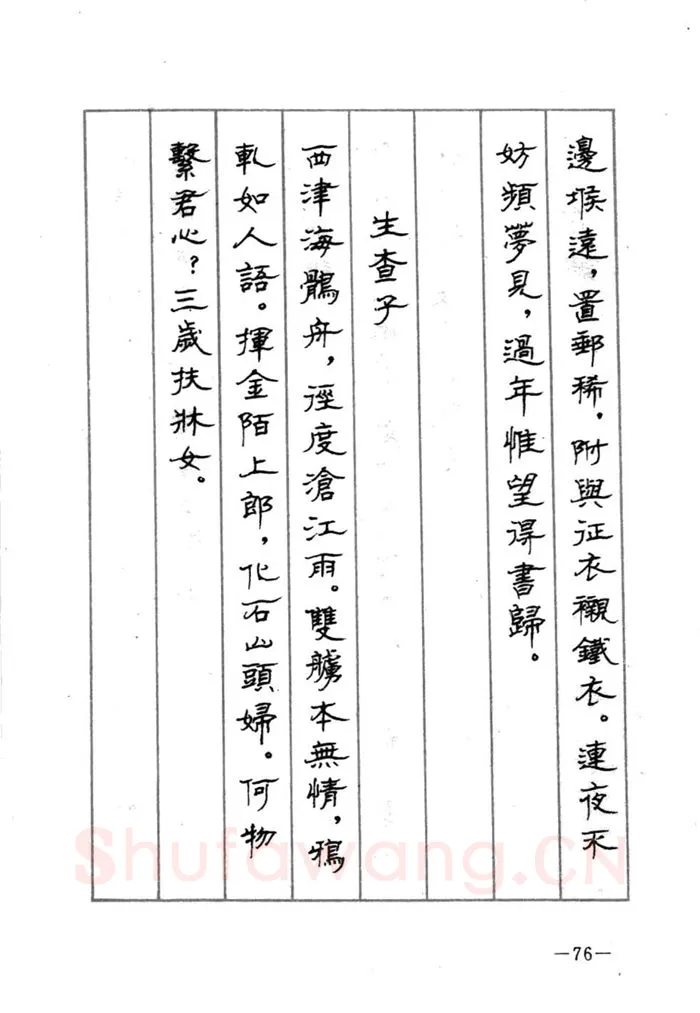 邊堠遠，置郵稀，附與征衣襯鐵衣。連夜不
妨頻夢見，過年惟望得書歸。
生查子
西津海鶻舟，徑度滄江雨。雙艣本無情，鴉
軋如人語。揮金陌上郎，化石山頭婦。何物
繫君心？三歲扶牀女。
Shufawang.CN
—76—